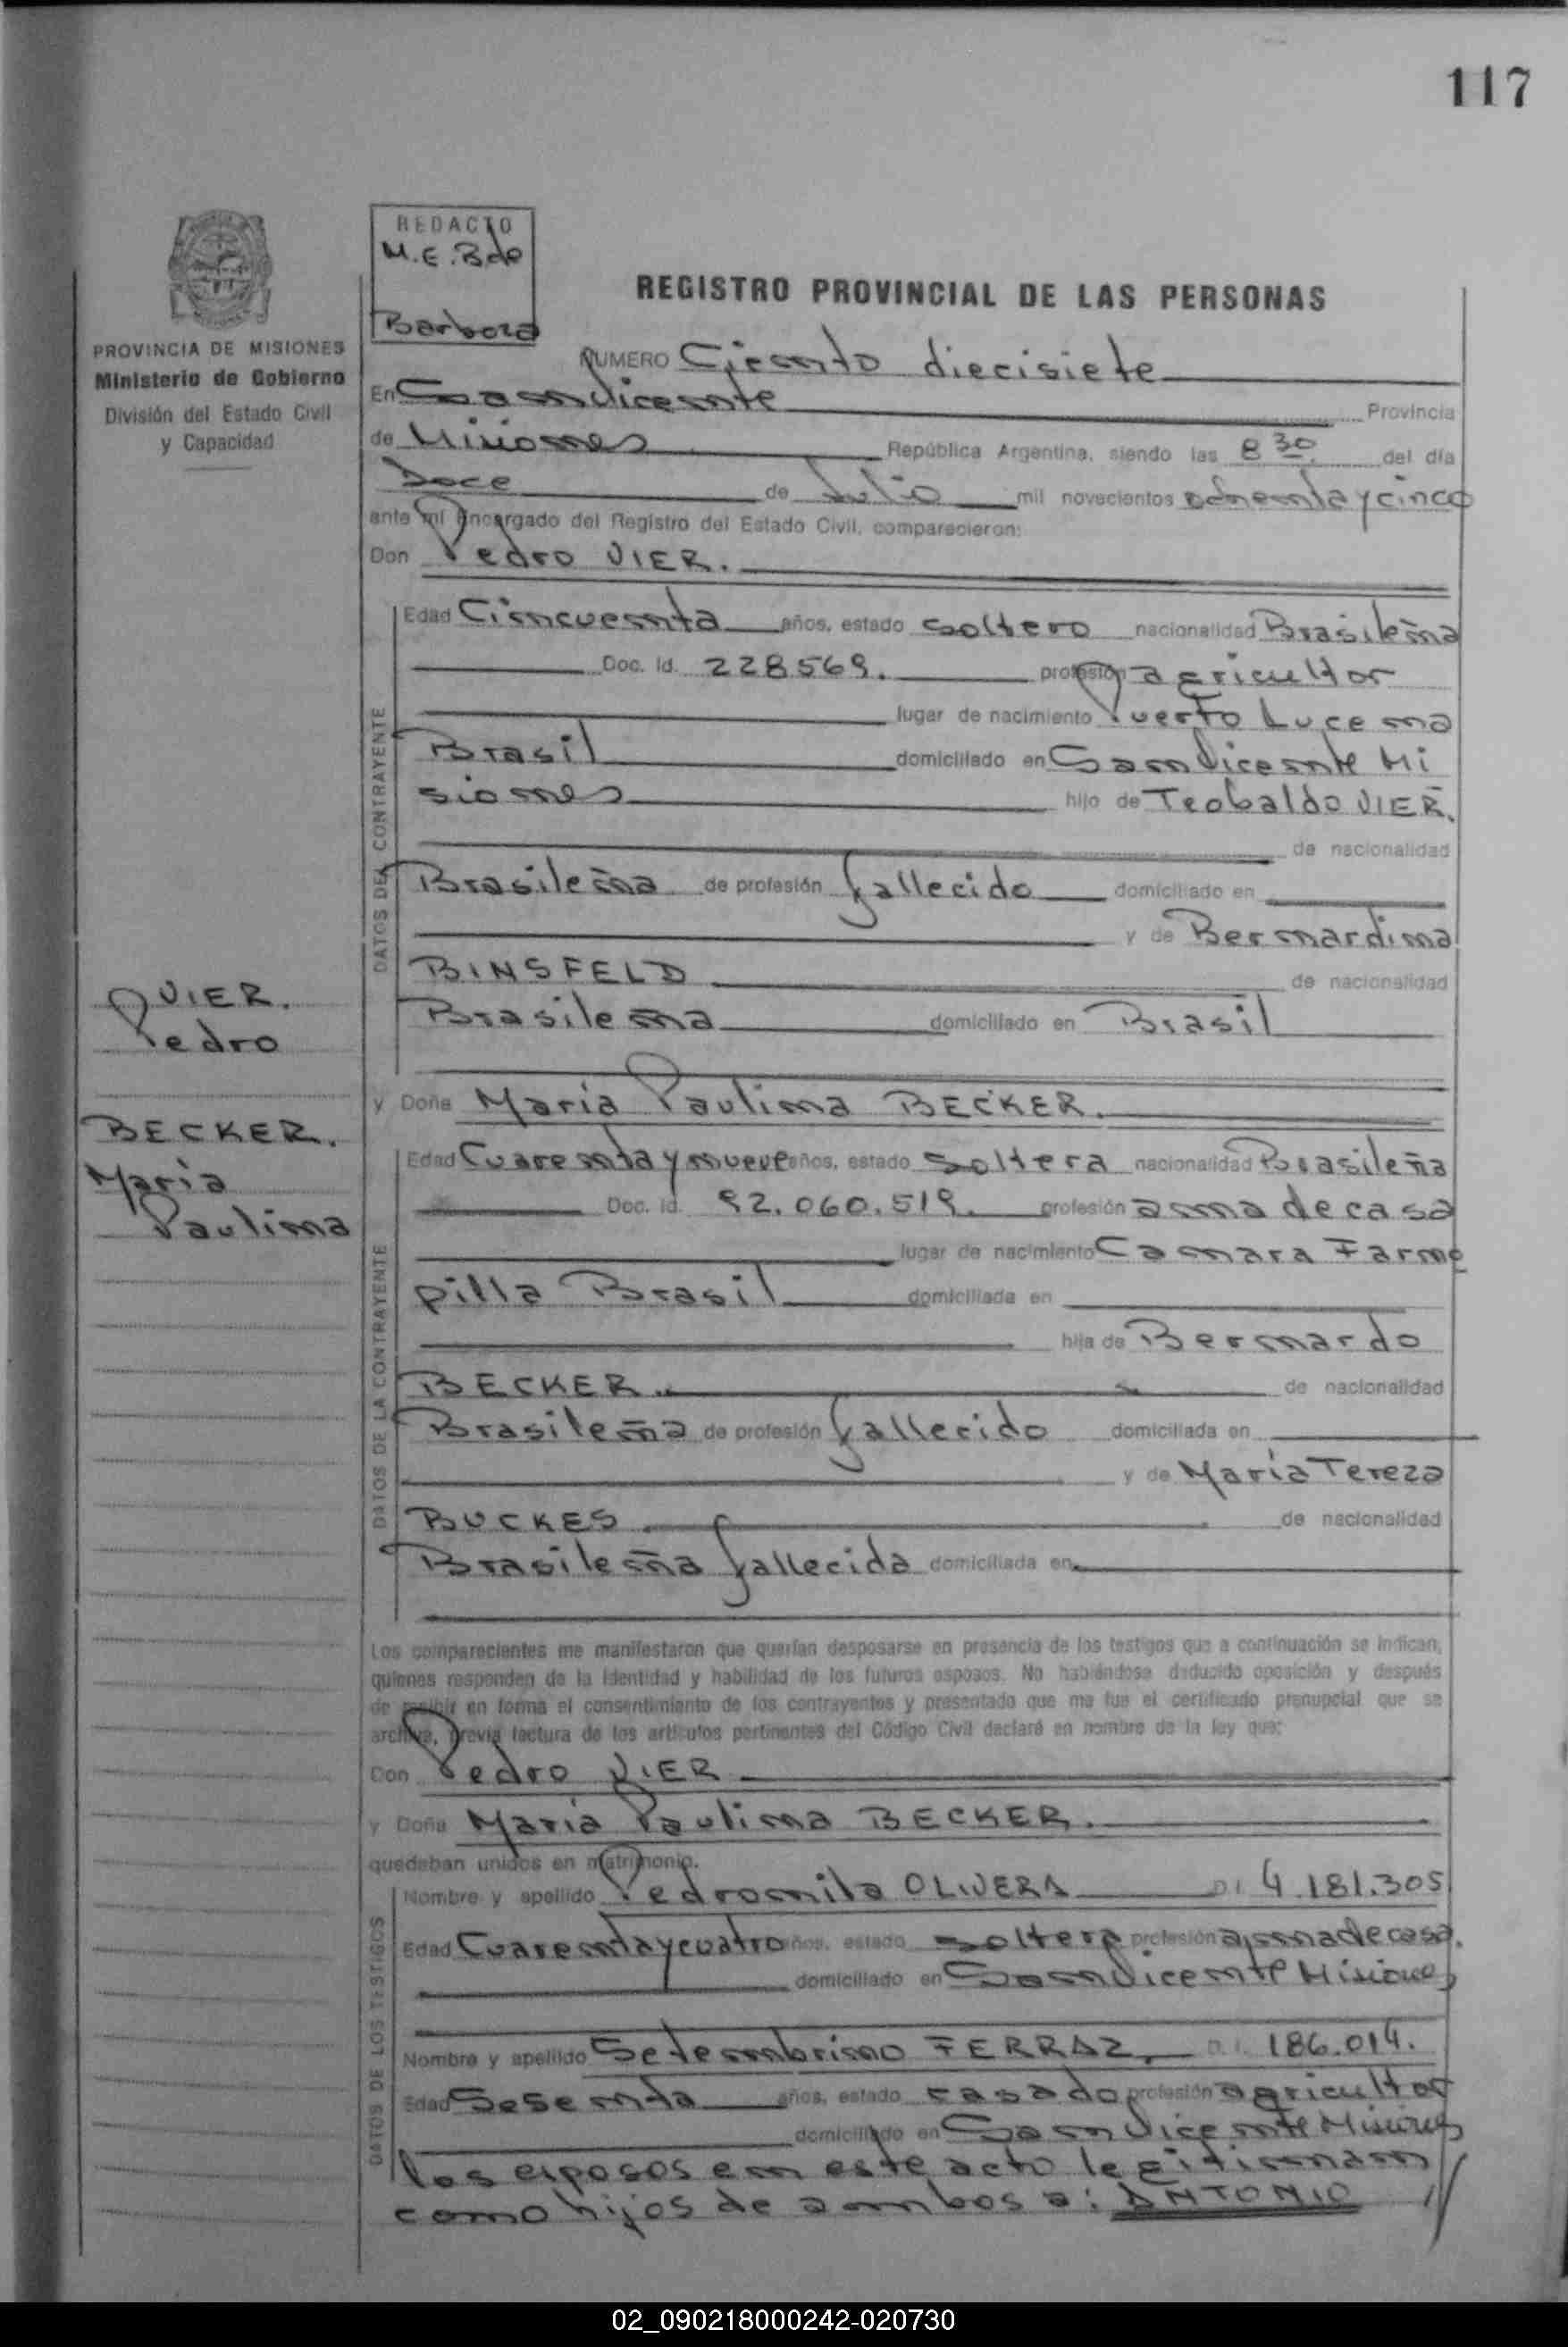 117
REDACTO
M.E.Bde
Barboza
REGISTRO PROVINCIAL DE LAS PERSONAS
PROVINCIA DE MISIONES
Ministerio de Gobierno
División del Estado Civil
y Capacidad
NUMERO Ciento diecisiete
En San Vicente Provincia
de Misiones República Argentina, siendo las 8 30 del día
Doce de Julio mil novecientos ochenta y cinco
ante mi Encargado del Registro del Estado Civil, comparecieron:
Don Pedro VIER.
Edad Cincuenta años, estado soltero nacionalidad Brasileña
Doc. Id. 228569. profesión agricultor
lugar de nacimiento Puerto Lucena
Brasil domiciliado en San Vicente Mi
siones hijo de Teobaldo VIER.
de nacionalidad
Brasileña de profesión fallecido domiciliado en
y de Bernardina
BINSFELD de nacionalidad
Brasileña domiciliado en Brasil
DATOS DEL CONTRAYENTE
VIER.
Pedro
BECKER.
María
Paulina
y Doña María Paulina BECKER.
Edad Cuarenta y nueve años, estado soltera nacionalidad Brasileña
Doc. Id. 92.060.519. profesión ama de casa
lugar de nacimiento Camara Farro
pilla Brasil domiciliada en
hija de Bernardo
BECKER. de nacionalidad
Brasileña de profesión fallecido domiciliada en
y de María Tereza
BUCKES de nacionalidad
Brasileña fallecida domiciliada en
DATOS DE LA CONTRAYENTE
Los comparecientes me manifestaron que querían desposarse en presencia de los testigos que a continuación se indican,
quienes responden de la identidad y habilidad de los futuros esposos. No habiéndose deducido oposición y después
de recibir en forma el consentimiento de los contrayentes y presentado que me fue el certificado prenupcial que se
archiva, previa lectura de los artículos pertinentes del Código Civil declaré en nombre de la ley que:
Don Pedro VIER
y Doña María Paulina BECKER.
quedaban unidos en matrimonio.
Nombre y apellido Pedromila OLIVERA D.I. 4.181.305
Edad Cuarenta y cuatro años, estado soltera profesión ama de casa.
domiciliado en San Vicente Misiones
Nombre y apellido Setembrino FERRAZ, D.I. 186.014.
Edad Sesenta años, estado casado profesión agricultor
domiciliado en San Vicente Misiones
DATOS DE LOS TESTIGOS
los esposos en este acto legitiman
como hijos de ambos a: ANTONIO //
02_090218000242-020730